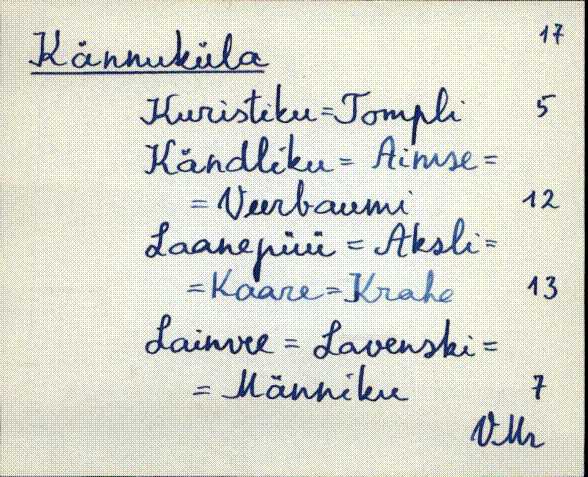 17
Kännuküla
Kuristiku = Tompli 5
Kändliku = Ainuse =
= Veerbaumi 12
Laanepüü = Aksli =
= Kaare = Krahe 13
Lainvee = Lavenski =
= Männiku 7
VMr